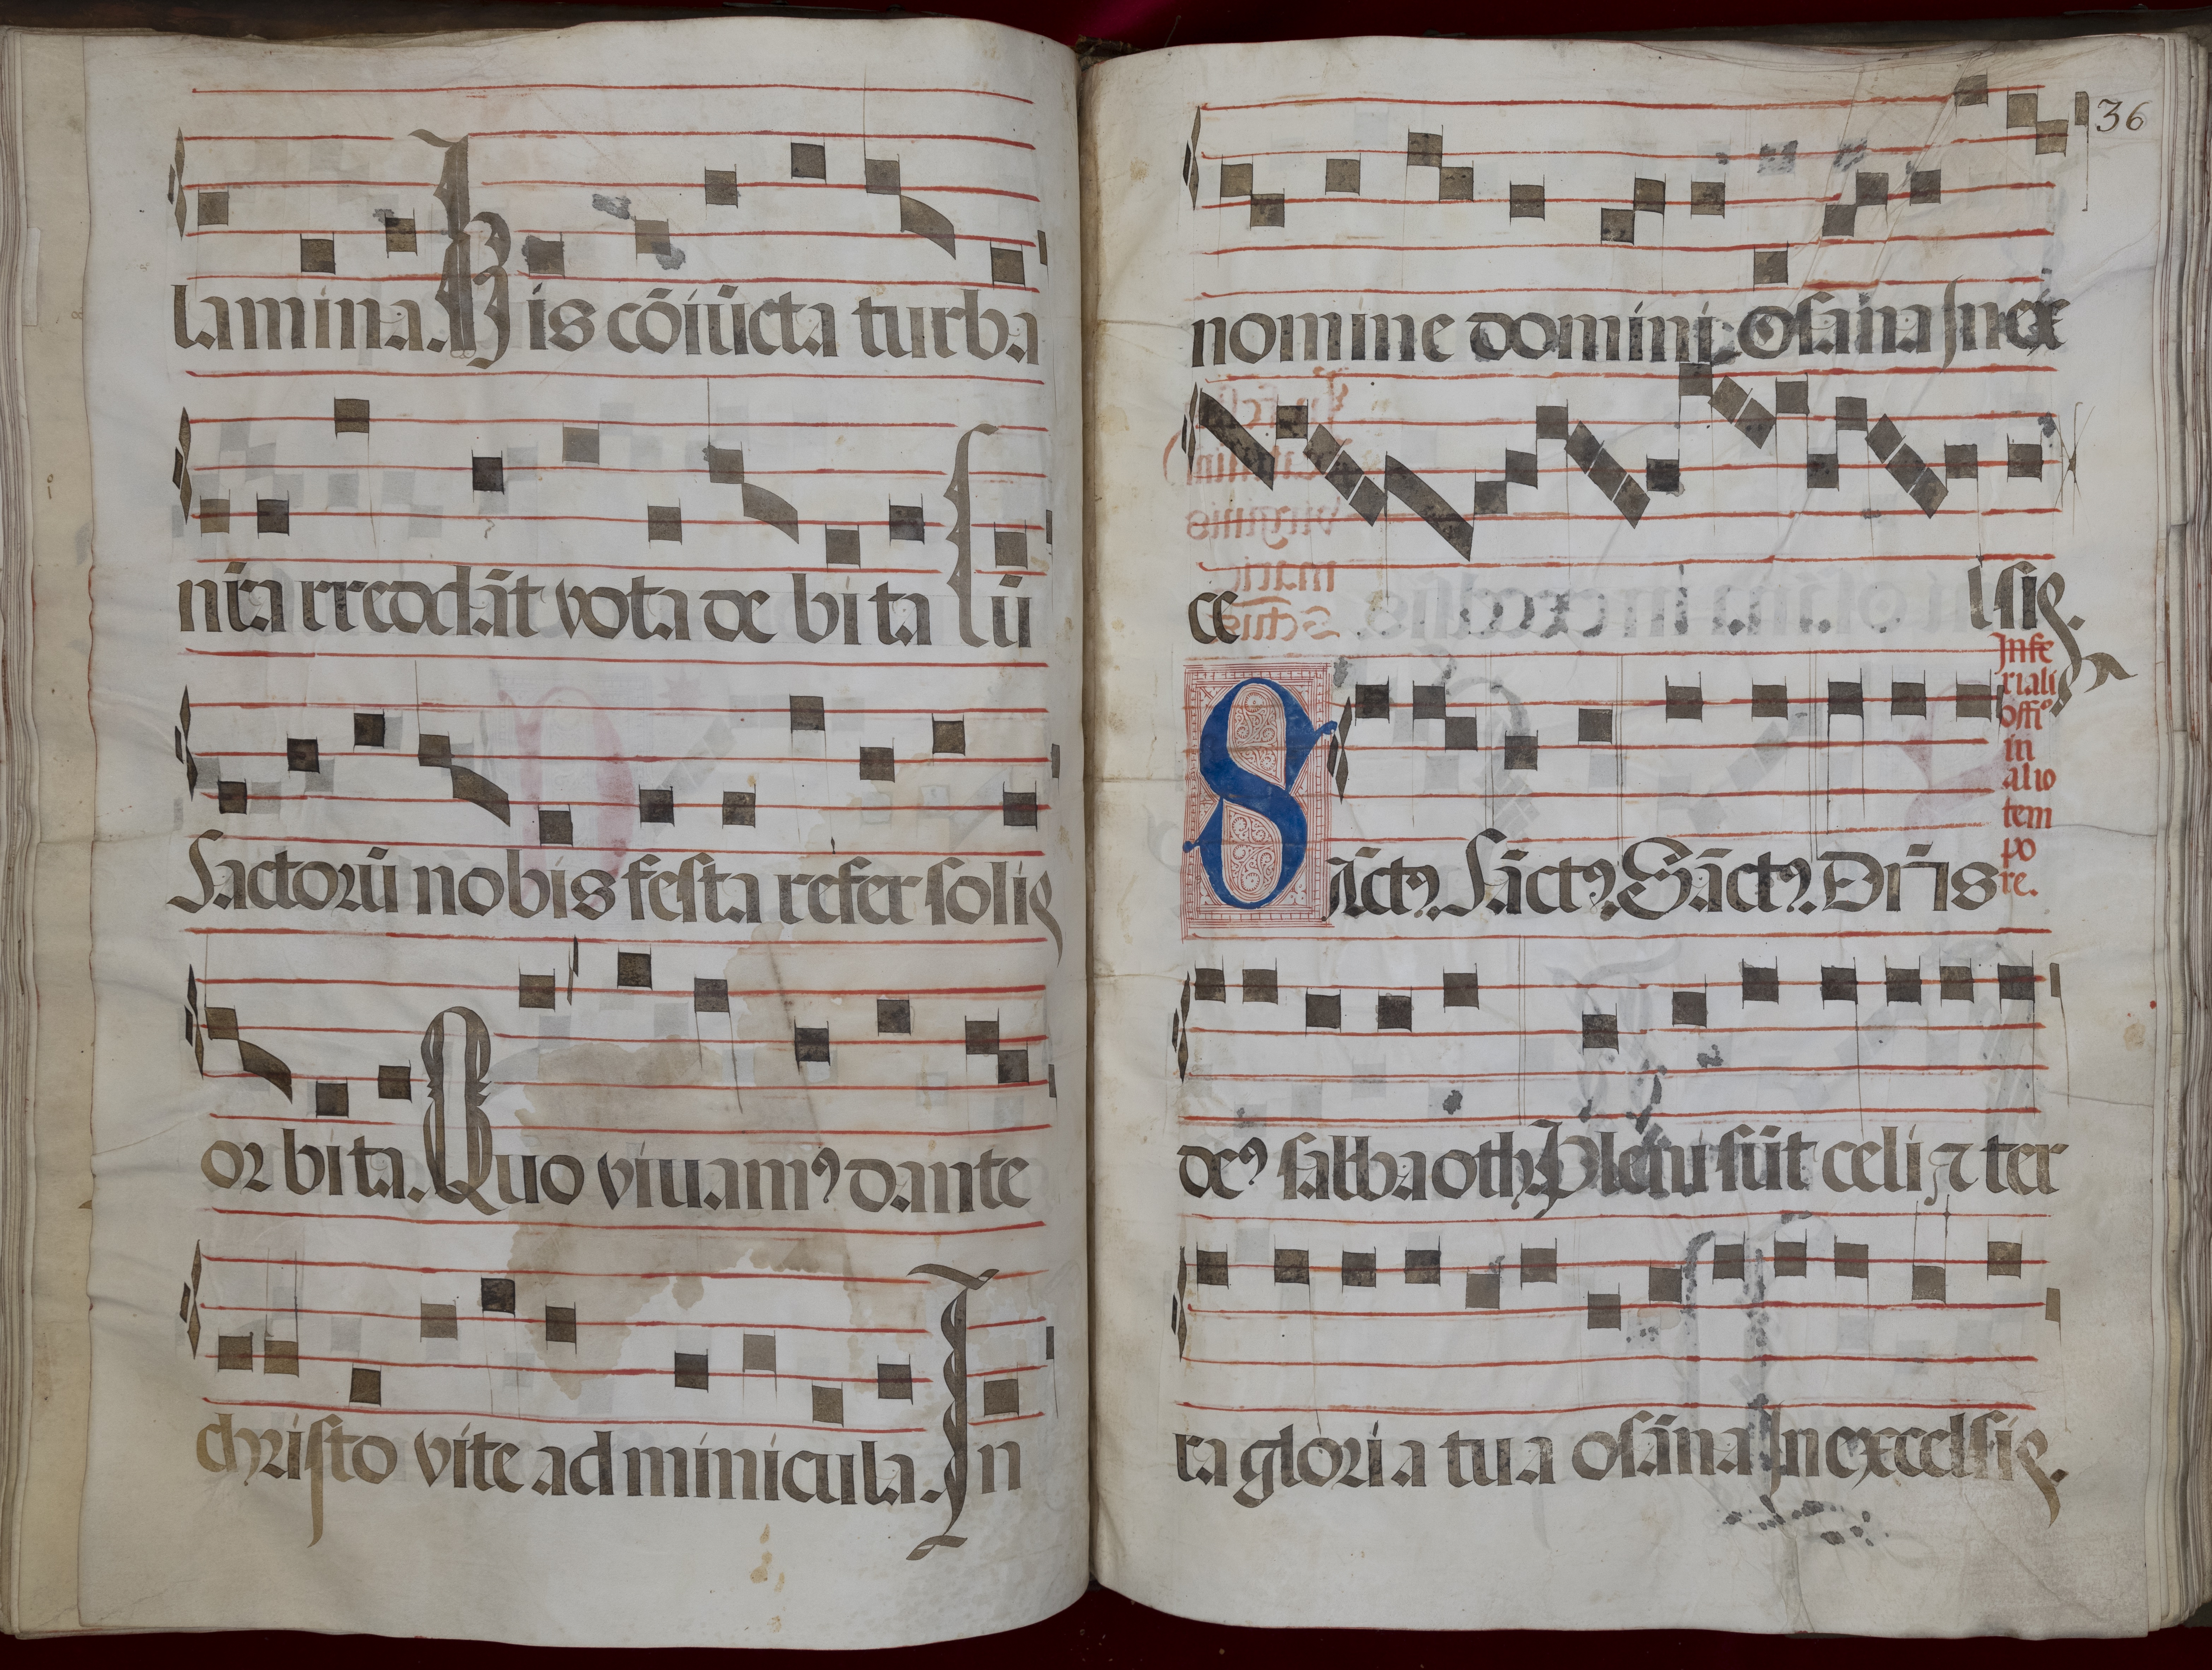 lamina. His cōiūcta turba
nr̄a rreddāt vota de bi ta Lū
Sactorū nobis festa refer soliꝫ
or bita. Quo viuamꝰ dante
christo vite adminicula. In
36
nomine domini. Osāna In ex
ce lsis.
In fe
riali
offiᵒ
in
alio
tem
po
re.
Sāctꝰ. Sāctꝰ. Sāctꝰ. Dn̄s
deꝰ sabbaoth. Pleni sūt celi ⁊ ter
ra gloria tua osāna In excelsis.